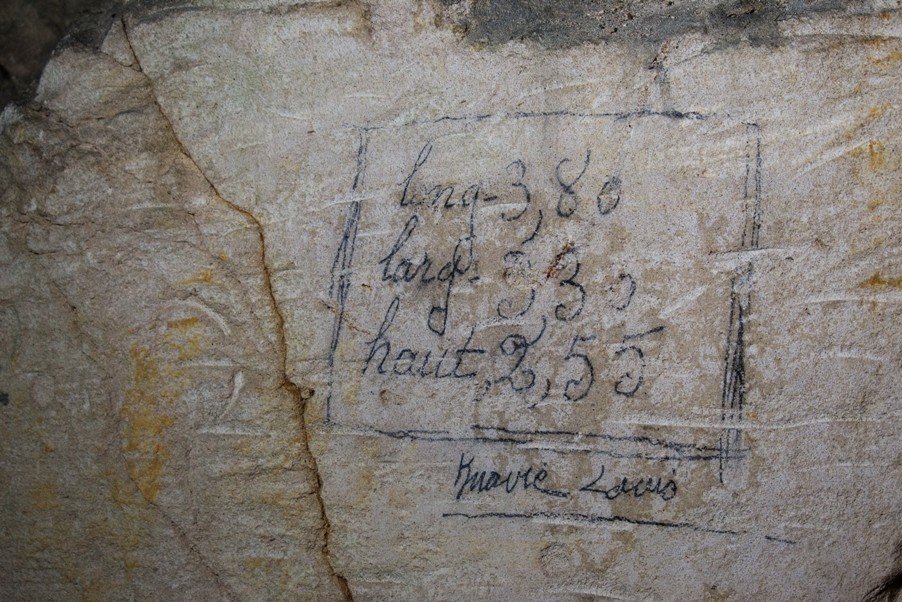 long- 3,80
larg- 3,30
haut, 2,55
Louis